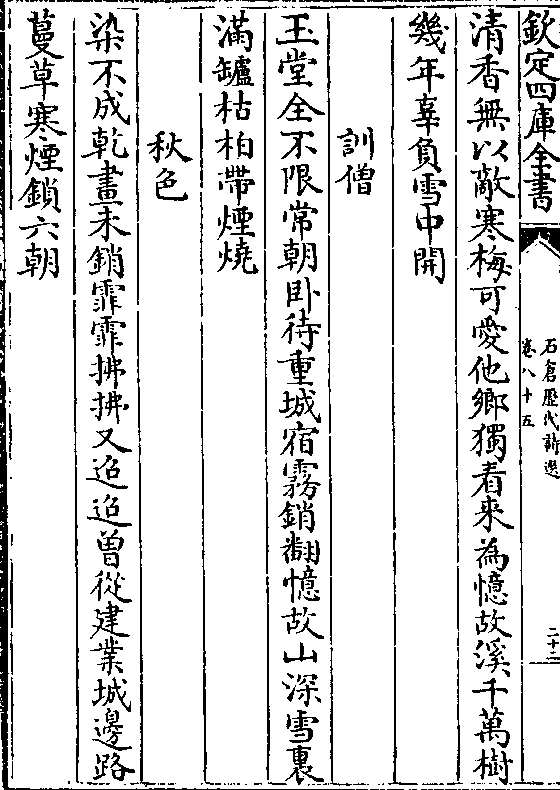 欽定四庫全書
石倉歷代詩選
卷八十五
二十二
清香無以敵寒梅可愛他鄉獨看來為憶故溪千萬樹
幾年辜負雪中開
訓僧
玉堂全不限常朝卧待重城宿霧銷翻憶故山深雪裏
滿罏枯柏帶煙燒
秋色
染不成乾畫未銷霏霏拂拂又迢迢曾從建業城邊路
蔓草寒煙鎖六朝